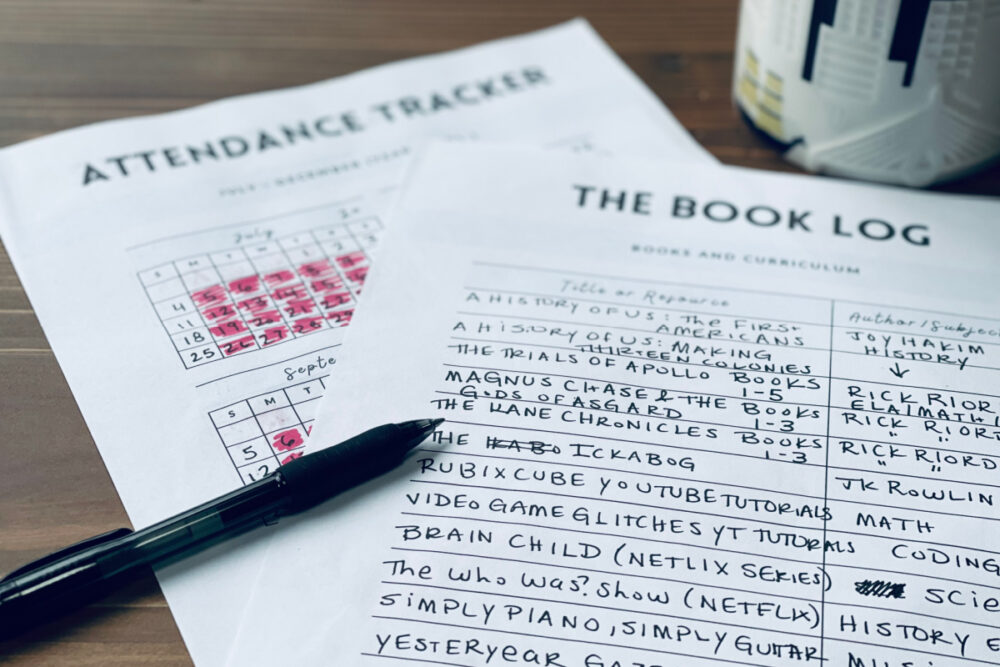 ATTENDANCE TRACKER
JULY - DECEMBER
July
S M T W T F S
1 2 3
4 5 6 7 8 9
11 12 13 14 15 16
18 19 20 21 22 23
25 26 27 28 29
Septe
S M T
5 6
12
THE BOOK LOG
BOOKS AND CURRICULUM
Title or Resource
Author/Subjec
A HISTORY OF US: The FIRST
AMERICANS
JOY HAKIM
A HISTORY OF US: MAKING
THIRTEEN COLONIES
HISTORY
↓
THE TRIALS OF APOLLO BOOKS
1-5
RICK RIOR
MAGNUS CHASE & THE BOOKS
GODS OF ASGARD 1-3
RICK RIORD
" "
THE KANE CHRONICLES BOOKS
1-3
RICK RIORD
" "
THE ICKABOG
JK ROWLIN
RUBIX CUBE YOUTUBE TUTORIALS MATH
VIDEO GAME GLITCHES YT TUTORIALS CODING
BRAIN CHILD (NETFLIX SERIES) SCIE
The who was? Show (NETFLIX) HISTORY E
SIMPLY PIANO, SIMPLY GUITAR MUS
YESTERYEAR GAZ